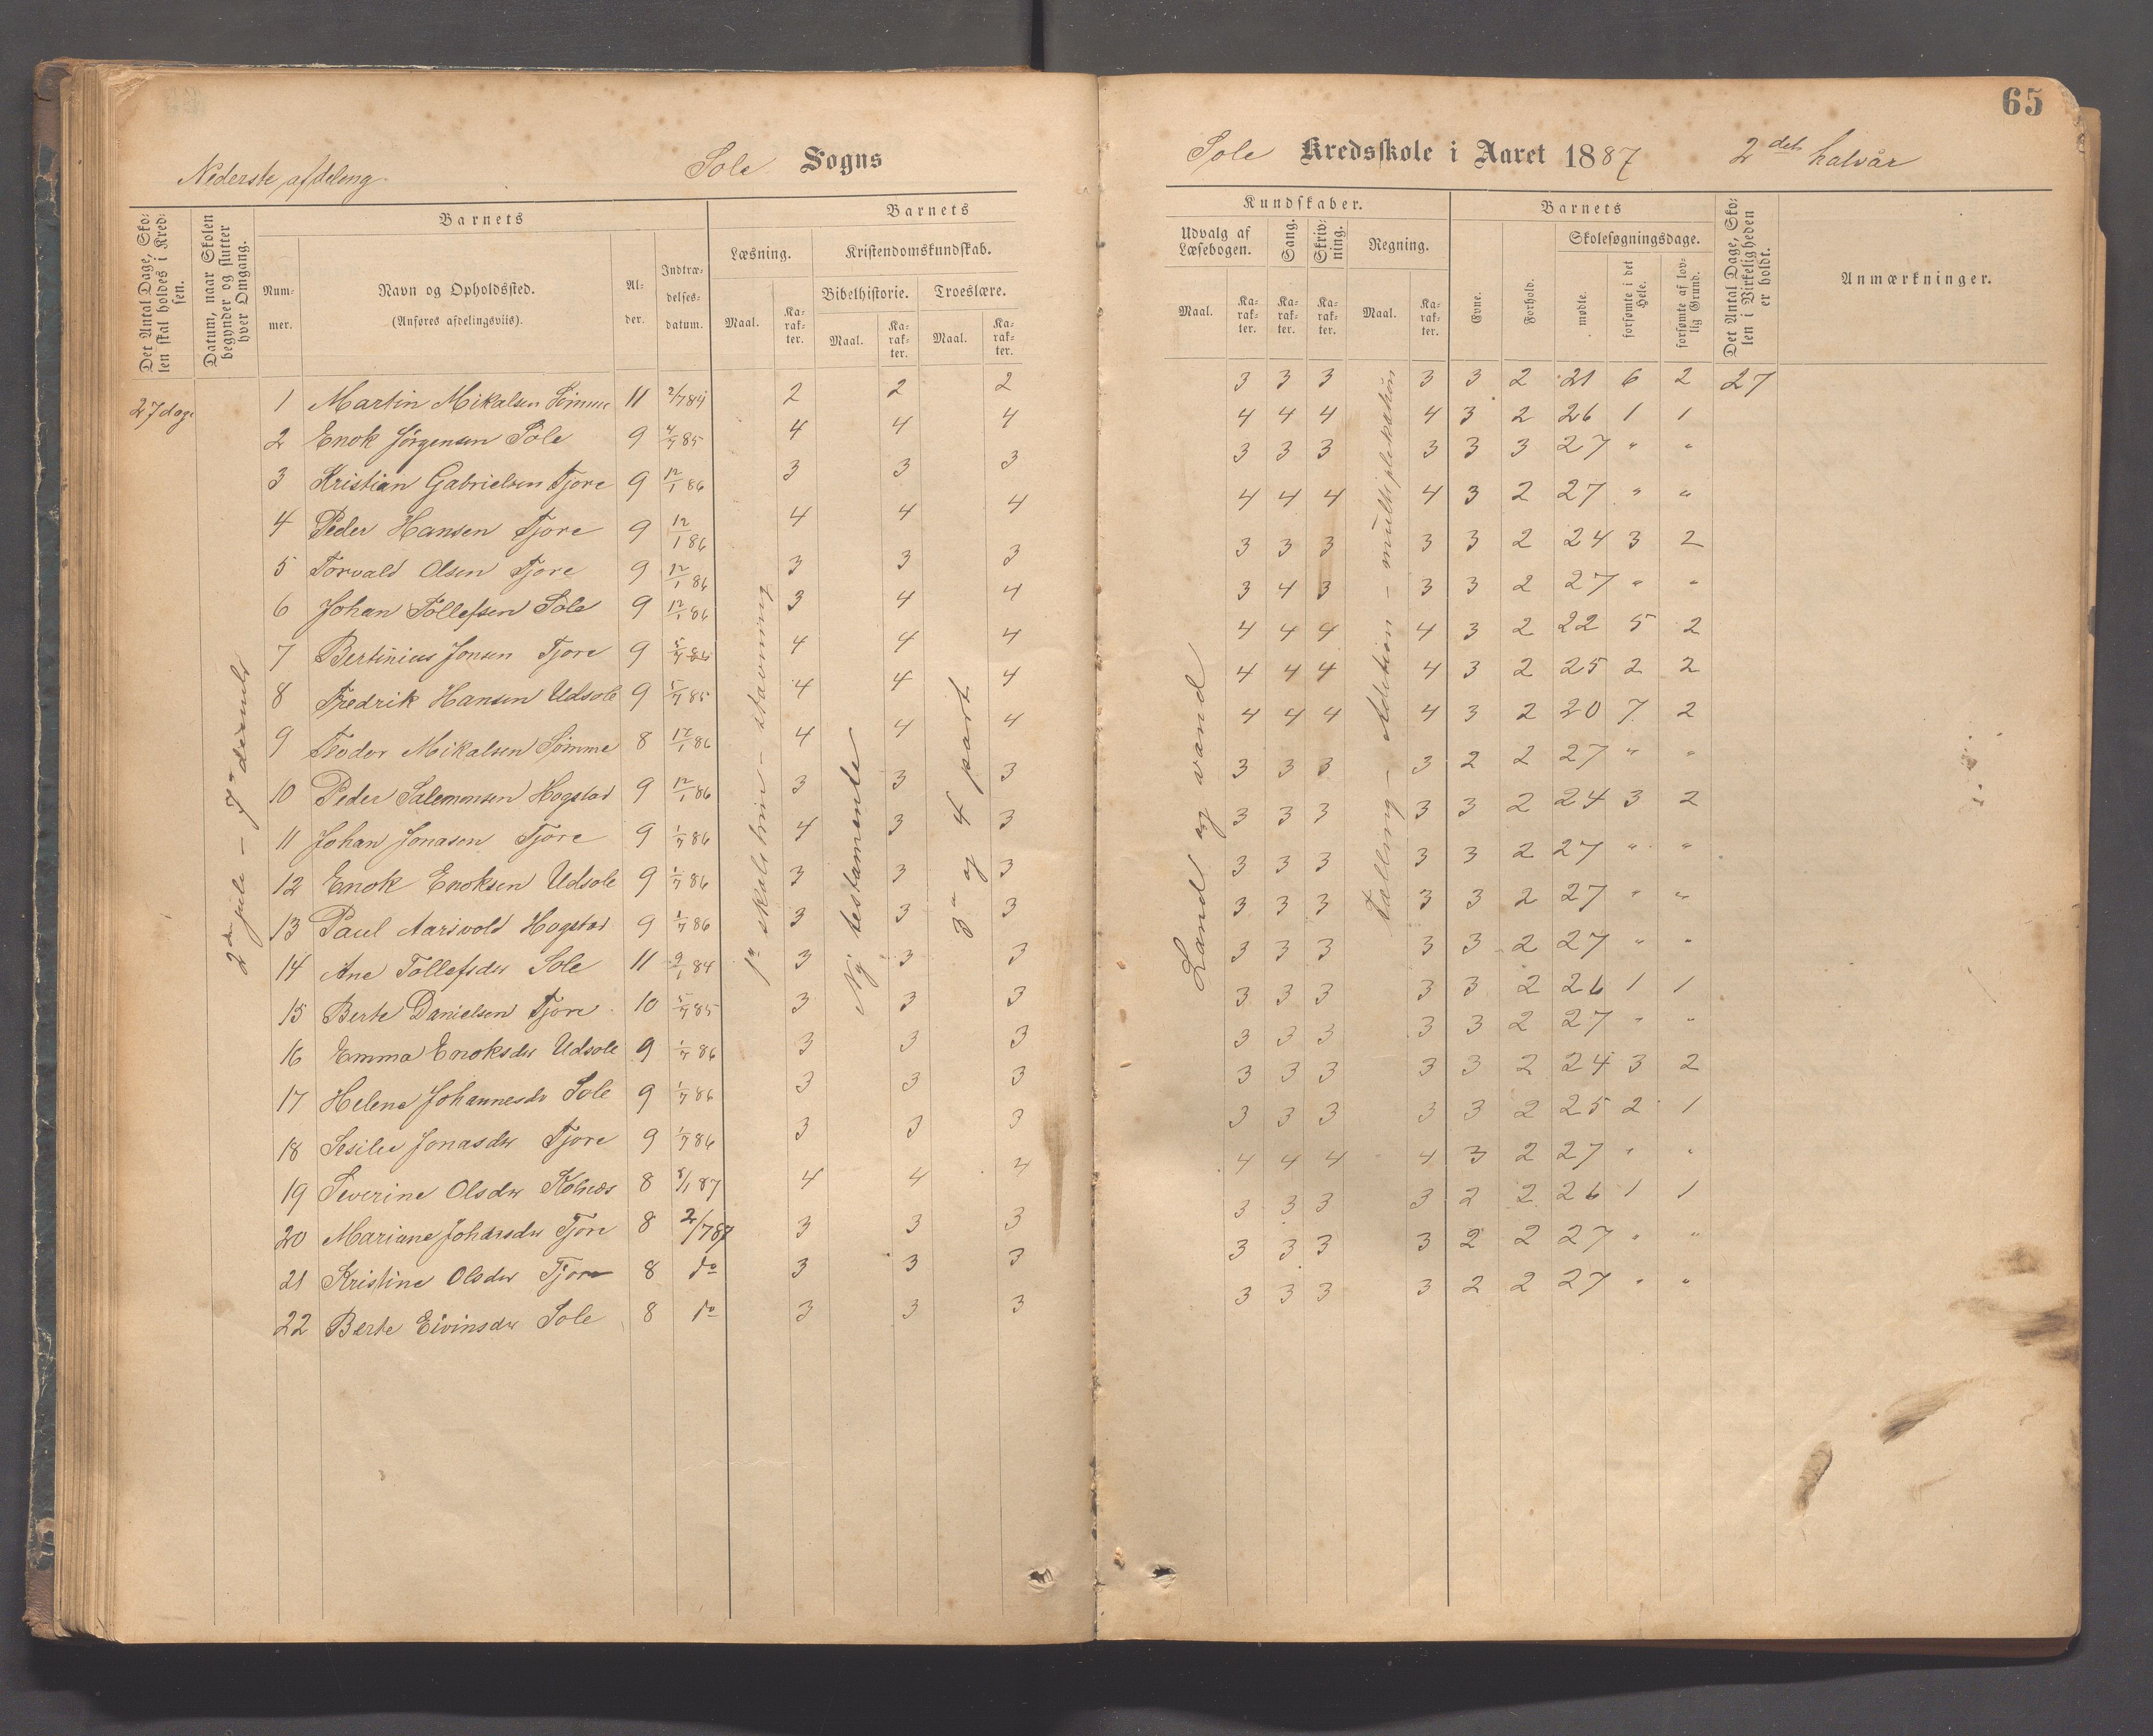 65
Nederste afdeling
Sole Sogns
Sole Kredsskole i Aaret 1887 2det halvår
Det Antal Dage, Skolen skal holdes i Kredsen.
Datum, naar Skolen begynder og slutter hver Omgang.
Barnets
Nummer.
Navn og Opholdssted.
(Anføres afdelingsviis).
Alder.
Indtrædelsesdatum.
Barnets
Læsning.
Maal.
Karakter.
Kristendomskundskab.
Bibelhistorie.
Maal.
Karakter.
Troeslære.
Maal.
Karakter.
Kundskaber.
Udvalg af Læsebogen.
Maal.
Karakter.
Sang.
Karakter.
Skrivning.
Karakter.
Regning.
Maal.
Karakter.
Barnets
Evne.
Forhold.
Skolesøgningsdage.
mødte.
forsømte i det Hele.
forsømte af lovlig Grund.
Det Antal Dage, Skolen i Virkeligheden er holdt.
Anmærkninger.
27 dage
1 Martin Mikalsen Sømme 11 2/7 84 2 2 2 3 3 3 3 3 2 21 6 2 27
2 Enok Jørgensen Sole 9 4/7 85 4 4 4 4 4 4 4 3 2 26 1 1
3 Kristian Gabrielsen Tjore 9 12/1 86 3 3 3 3 3 3 3 3 3 27 " "
4 Peder Hansen Tjore 9 12/1 86 4 4 4 4 4 4 4 3 2 27 " "
5 Torvald Olsen Tjore 9 12/1 86 3 3 3 3 3 3 3 3 2 24 3 2
6 Johan Tollefsen Sole 9 12/1 86 3 4 4 3 4 3 3 3 2 27 " "
7 Bertinius Jonsen Tjore 9 5/7 86 4 4 4 4 4 4 4 3 2 22 5 2
8 Fredrik Hansen Udsole 9 5/7 85 4 4 4 4 4 4 4 3 2 25 2 2
9 Teodor Mikalsen Sømme 8 12/1 86 4 4 4 4 4 4 4 3 2 20 7 2
10 Peder Salemonsen Hogstad 9 12/1 86 3 3 3 3 3 3 3 2 2 27 " "
11 Johan Jonasen Tjore 9 1/7 86 4 3 3 3 3 3 3 3 2 24 3 2
12 Enok Enoksen Udsole 9 1/7 86 3 3 3 3 3 3 3 3 2 27 " "
13 Paul Aarsvold Hogstad 9 1/7 86 3 3 3 3 3 3 3 3 2 27 " "
14 Ane Tollefsdtr Sole 11 9/1 84 3 3 3 3 3 3 3 3 2 27 " "
15 Berte Danielsen Tjore 10 5/7 85 3 3 3 3 3 3 3 3 2 26 1 1
16 Emma Enoksdtr Udsole 9 1/7 86 3 3 3 3 3 3 3 3 2 27 " "
17 Helene Johannesdtr Sole 9 1/7 86 3 3 3 3 3 3 3 3 2 24 3 2
18 Sesilie Jonasdtr Tjore 9 1/7 86 3 3 3 3 3 3 3 3 2 25 2 1
19 Severine Olsdtr Kolnes 8 8/1 87 4 4 4 4 4 4 4 3 2 27 " "
20 Mariane Johansdtr Tjore 8 2/7 87 3 3 3 3 3 3 3 2 2 26 1 1
21 Kristine Olsdtr Tjore 8 do 3 3 3 3 3 3 3 2 2 27 " "
22 Berte Eivinsdtr Sole 8 do 3 3 3 3 3 3 3 2 2 27 " "
2den jule – 7de
1ste skoletrin – stavning
Ny testamente
3die og 4 part
Land og vand
Tælling – Adition – multiplekation